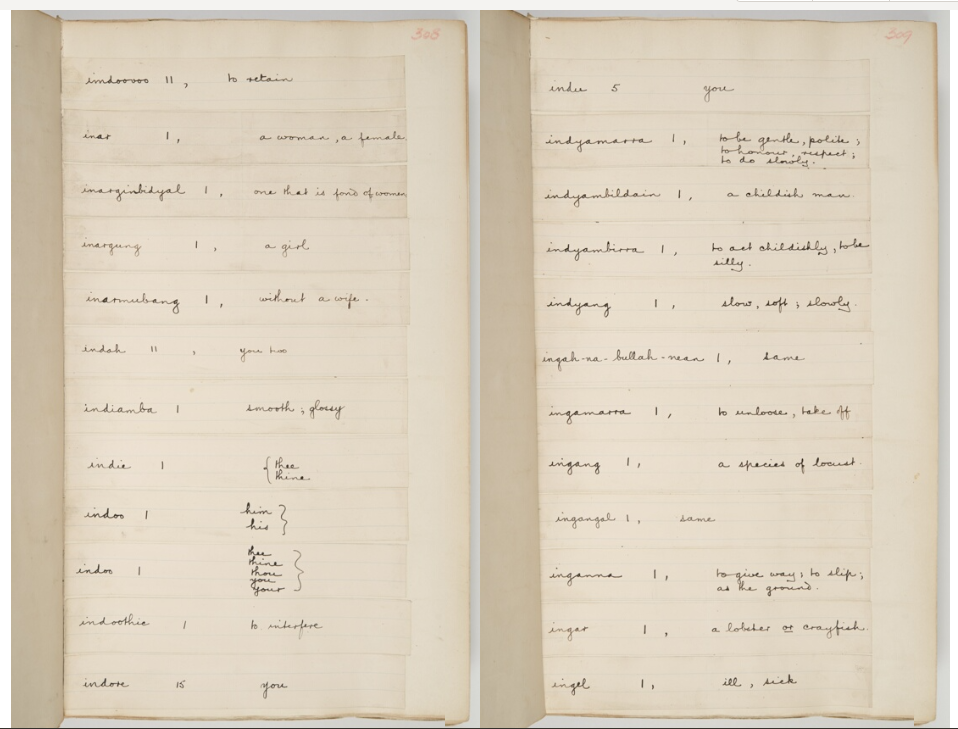 308
imdooroo 11, to retain
inar 1, a woman, a female
inarginbidyal 1, one that is fond of women
inargung 1, a girl
inarmubang 1, without a wife.
indah 11, you two
indiamba 1 smooth; glossy
indie 1 { thee
thine
indoo 1 him }
his
indoo 1 thee }
thine
thou
you
your
indoothie 1 to interfere
indore 15 you
309
indu 5 you
indyamarra 1, to be gentle, polite;
to honour, respect;
to do slowly.
indyambildain 1, a childish man.
indyambirra 1, to act childishly, to be
silly.
indyang 1, slow, soft; slowly.
ingah-na-bullah-nean 1, same
ingamarra 1, to unloose, take off
ingang 1, a species of locust.
ingangel 1, same
inganna 1, to give way; to slip;
as the ground.
ingar 1, a lobster or crayfish.
ingel 1, ill, sick